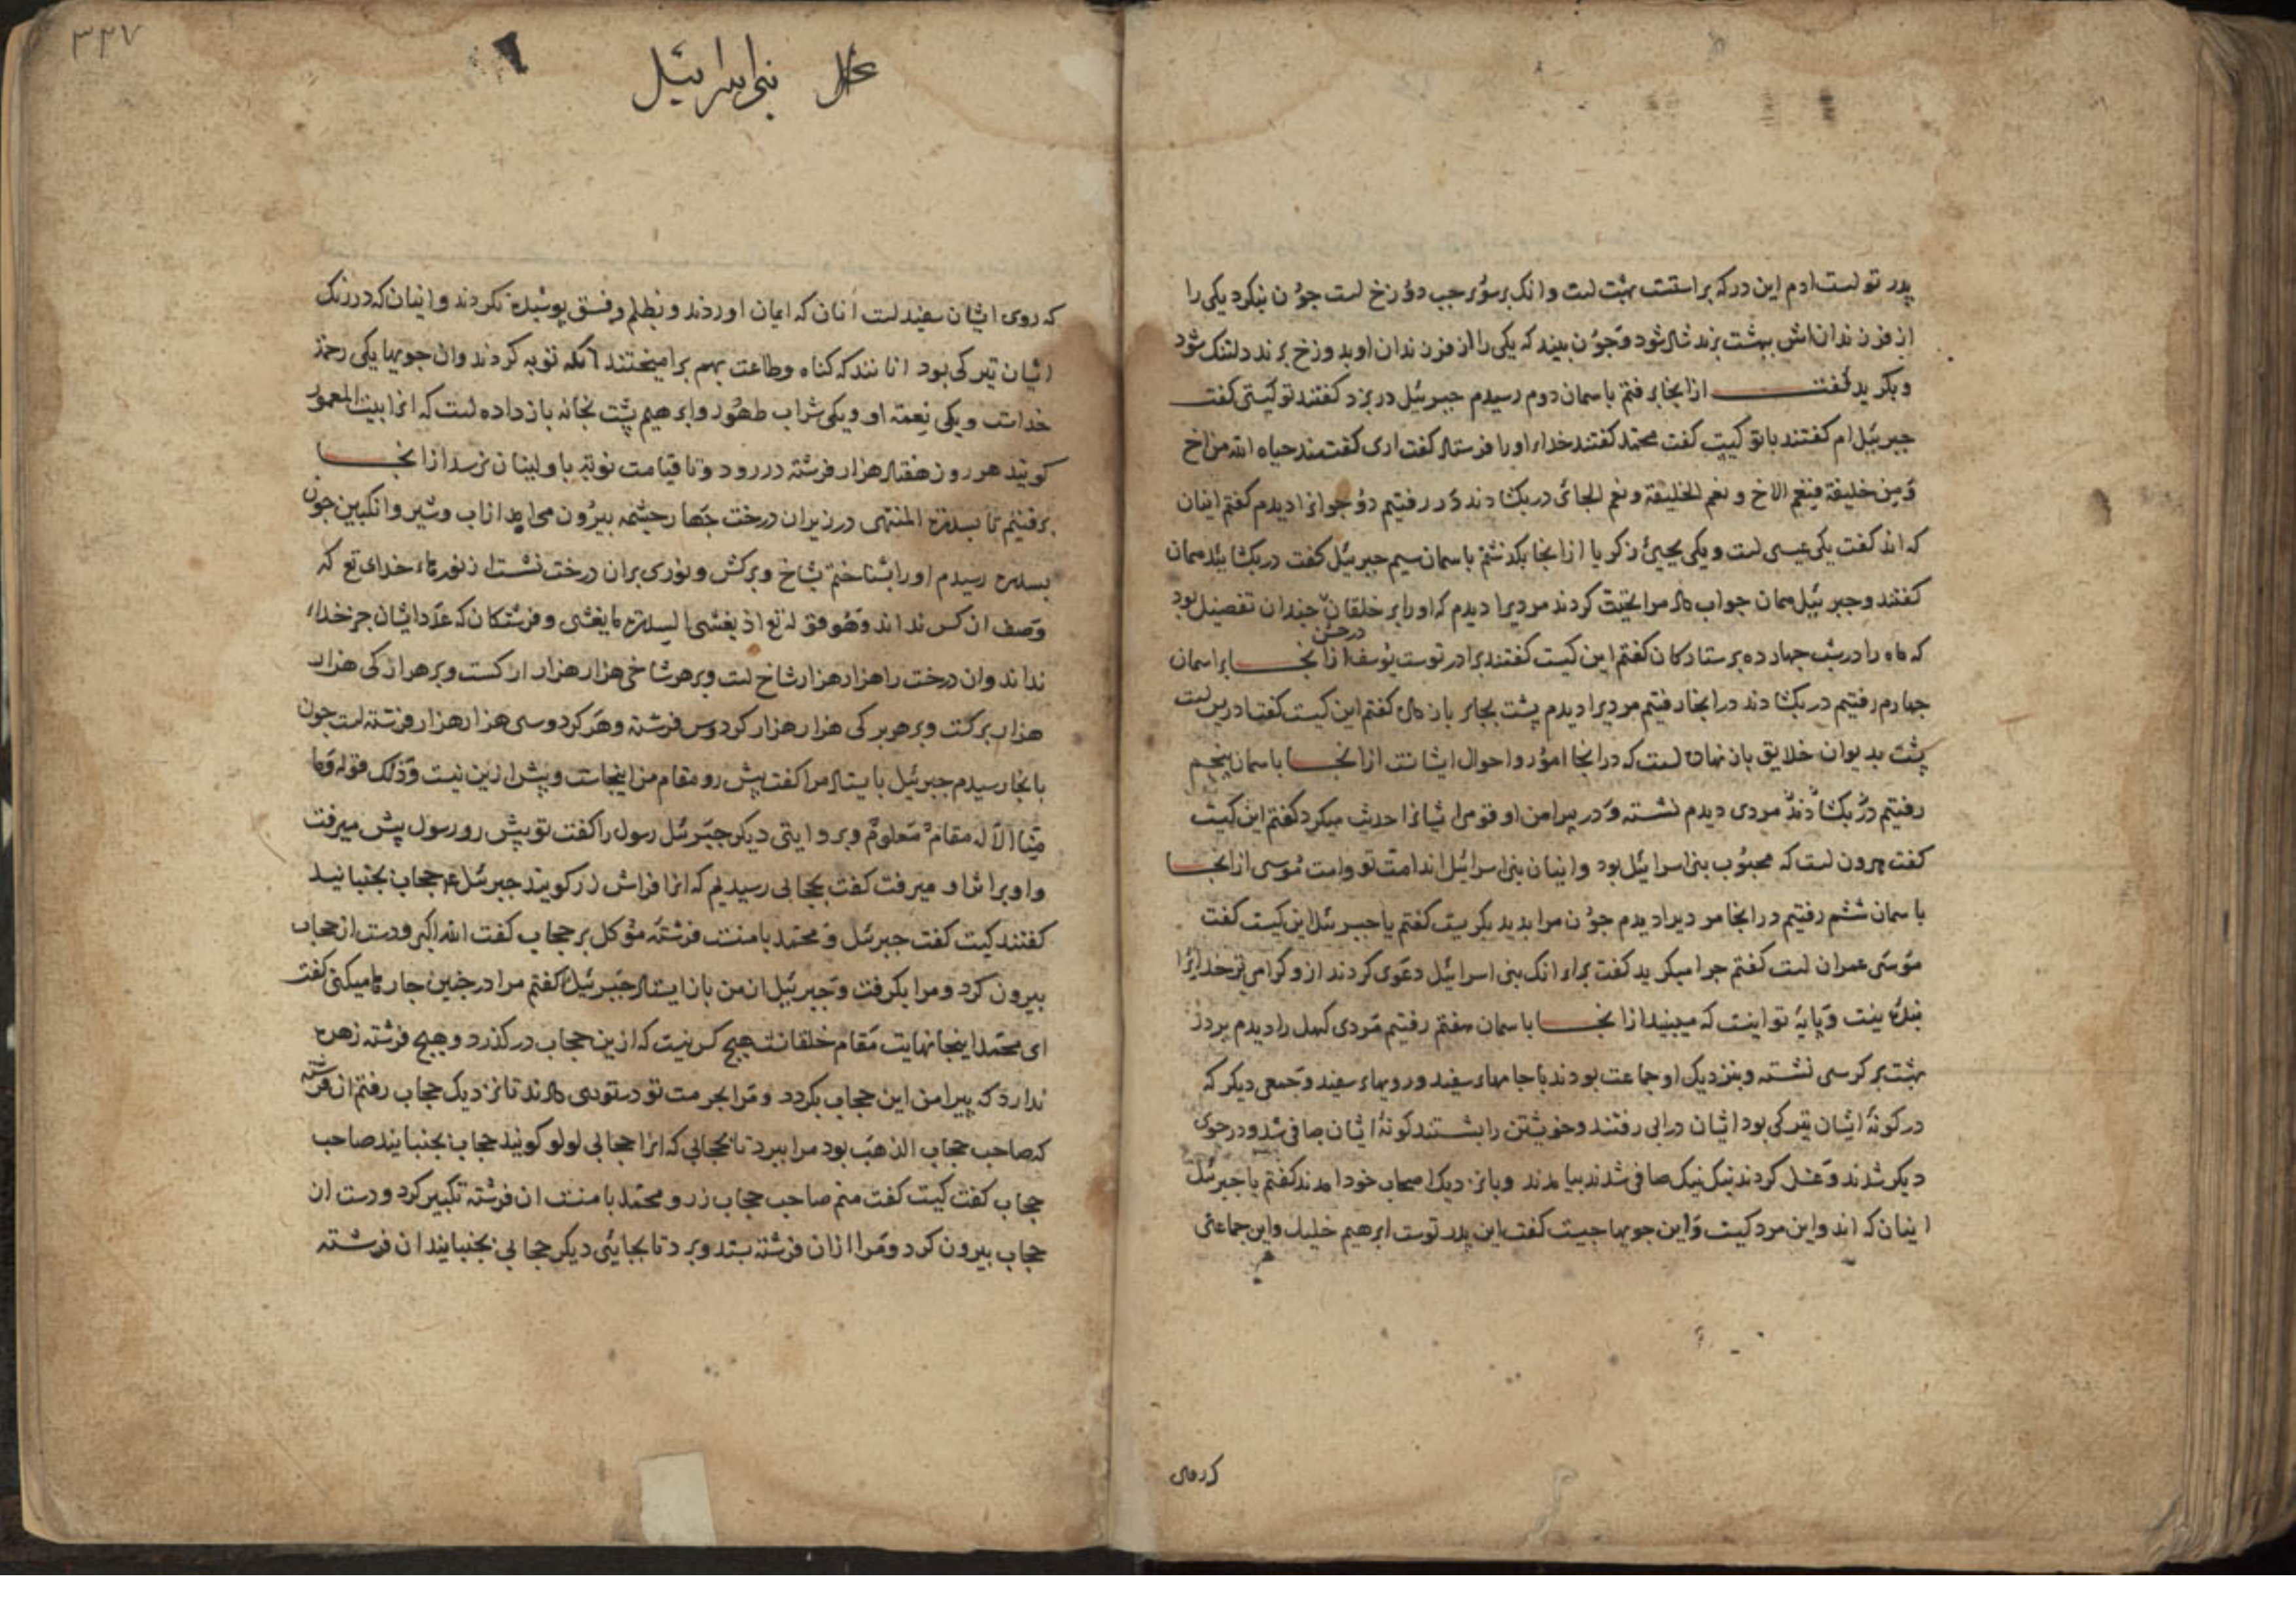 پدر تو است ادم این در که بر راستست بهشت است وانک بر سوی جب دوزخ است جون بنکرد یکی را
از فرزندان اش ببهشت برند شاد شود وجون بیند که یکی را از فرزندان او بدوزخ برند دلتنک شود
وبکرید کفت از انجا برفتم باسمان دوم رسیدم جبرئیل در بزد کفتند تو کیستی کفت
جبرئیل ام کفتند با تو کیست کفت محمد کفتند خدای اورا فرستاد کفت اری کفتند حیاه الله من اخ
ومن خلیفة فنعم الاخ و نعم الخلیفة ونعم الجائی در بکشادند در رفتیم دو جوانرا دیدم کفتم اینان
که اند کفت یکی عیسی است ویکی یحیی زکریا از انجا بکذشتم باسمان سیم جبرئیل کفت در بکشائید همان
کفتند وجبرئیل همان جواب داد مرا تحیت کردند مردیرا دیدم که اورا بر خلقان جندان تفضیل بود در حسن
که ماه را در شب جهارده بر ستارکان کفتم این کیست کفتند برادر توست یوسف از انجا بر اسمان
جهارم رفتیم در بکشادند در انجا رفتیم مردیرا دیدم پشت بجای باز داده کفتم این کیست کفتا دریس است
پشت بدیوان خلایق باز نهاده است که در انجا امور واحوال ایشانست از انجا باسمان پنجم
رفتیم در بکشادند مردی دیدم نشسته ودر پیرامن او قومی ایشانرا حدیث میکرد کفتم این کیست
کفت هرون است که محبوب بنی اسرائیل بود واینان بنی اسرائیل اند امت تو وامت موسی از انجا
باسمان ششم رفتیم در انجا مردیرا دیدم جون مرا بدید بکریست کفتم یا جبرئیل این کیست کفت
موسی عمران است کفتم جرا میکرید کفت برای انک بنی اسرائیل دعوی کردند از و کرامی تر خدایرا
بنده نیست وپایهٔ تو اینست که میبیند از انجا باسمان هفتم رفتیم مردی کهل را دیدم بر در
بهشت بر کرسی نشسته وبنزدیک او جماعت بودند با جامهاء سفید ورویهاء سفید وجمعی دیکر که
در کونهٔ ایشان تیرکی بود ایشان درابی رفتند وخویشتن را بشستند کونهٔ ایشان صافی شد ودر جوی
دیکر شدند وغسل کردند نیک نیک صافی شدند بیامدند وبا نزدیک اصحاب خود امدند کفتم یا جبرئیل
اینان که اند واین مرد کیست واین جویها جیست کفت این پدر توست ابرهیم خلیل واین جماعتی
که روی
۳۲۷
بنی اسرائیل
که روی ایشان سفید است انان که ایمان اوردند وبظلم وفسق پوشیده نکردند واینان که در رنک
ایشان تیرکی بود انانند که کناه وطاعت بهم برامیختند انکه توبه کردند وان جویها یکی رحمة
خداست ویکی نعمة او ویکی شراب طهور وابرهیم پشت بخانه باز داده است که انرا بیت المعمور
کویند هر روز هفتاد هزار فرشته در رود وتا قیامت نوبة باولینان نرسد از انجا
برفتیم تا بسدرة المنتهی در زیر ان درخت جهار جشمه بیرون می امد از اب وشیر وانکبین جون
بسدره رسیدم اورا بشناختم بشاخ وبرکش ونوری بران درخت نشست از نورهاء خدای تع که
وصف ان کس نداند وهو قوله تع اذ یغشی السدرة ما یغشی وفرشتکان که عدد ایشان جز خداء
نداند وان درخت را هزار هزار شاخ است وبر هر شاخی هزار هزار ارکست وبر هر ارکی هزار
هزار برکست وبر هر برکی هزار هزار کردوس فرشته وهر کردوسی هزار هزار فرشته است جون
بانجا رسیدم جبرئیل بایستاد مرا کفت پیش رو مقام من اینجاست وپیش ازین نیست وذلک قوله وما
منا الا له مقام معلوم وبروایتی دیکر جبرئیل رسول را کفت تو پیش رو رسول پیش میرفت
واو بر اثر او میرفت کفت بحجابی رسیدیم که انرا فراش زر کویند جبرئیل ع حجاب بجنبانید
کفتند کیست کفت جبرئیل ومحمد با منست فرشتهٔ موکل بر حجاب کفت الله اکبر ودست از حجاب
بیرون کرد ومرا بکرفت وجبرئیل از من باز ایستاد جبرئیل را کفتم مرا در جنین جای رها میکنی کفت
ای محمد اینجا نهایت مقام خلقانست هیچ کس نیست که ازین حجاب در کذرد وهیچ فرشته زهره
ندارد که پیرامن این حجاب بکردد ومرا بحرمت تو دستوری دادند تا نزدیک حجاب رفتم ان فرشته
که صاحب حجاب الذهب بود مرا ببرد تا بحجابی که انرا حجاب لولو کویند حجاب بجنبانید صاحب
حجاب کفت کیست کفت منم صاحب حجاب زر ومحمد با منست ان فرشته تکبیر کرد ودست از
حجاب بیرون کرد ومرا ازان فرشته بستد وببرد تا بجایئی دیکر حجابی بجنبانید ان فرشته